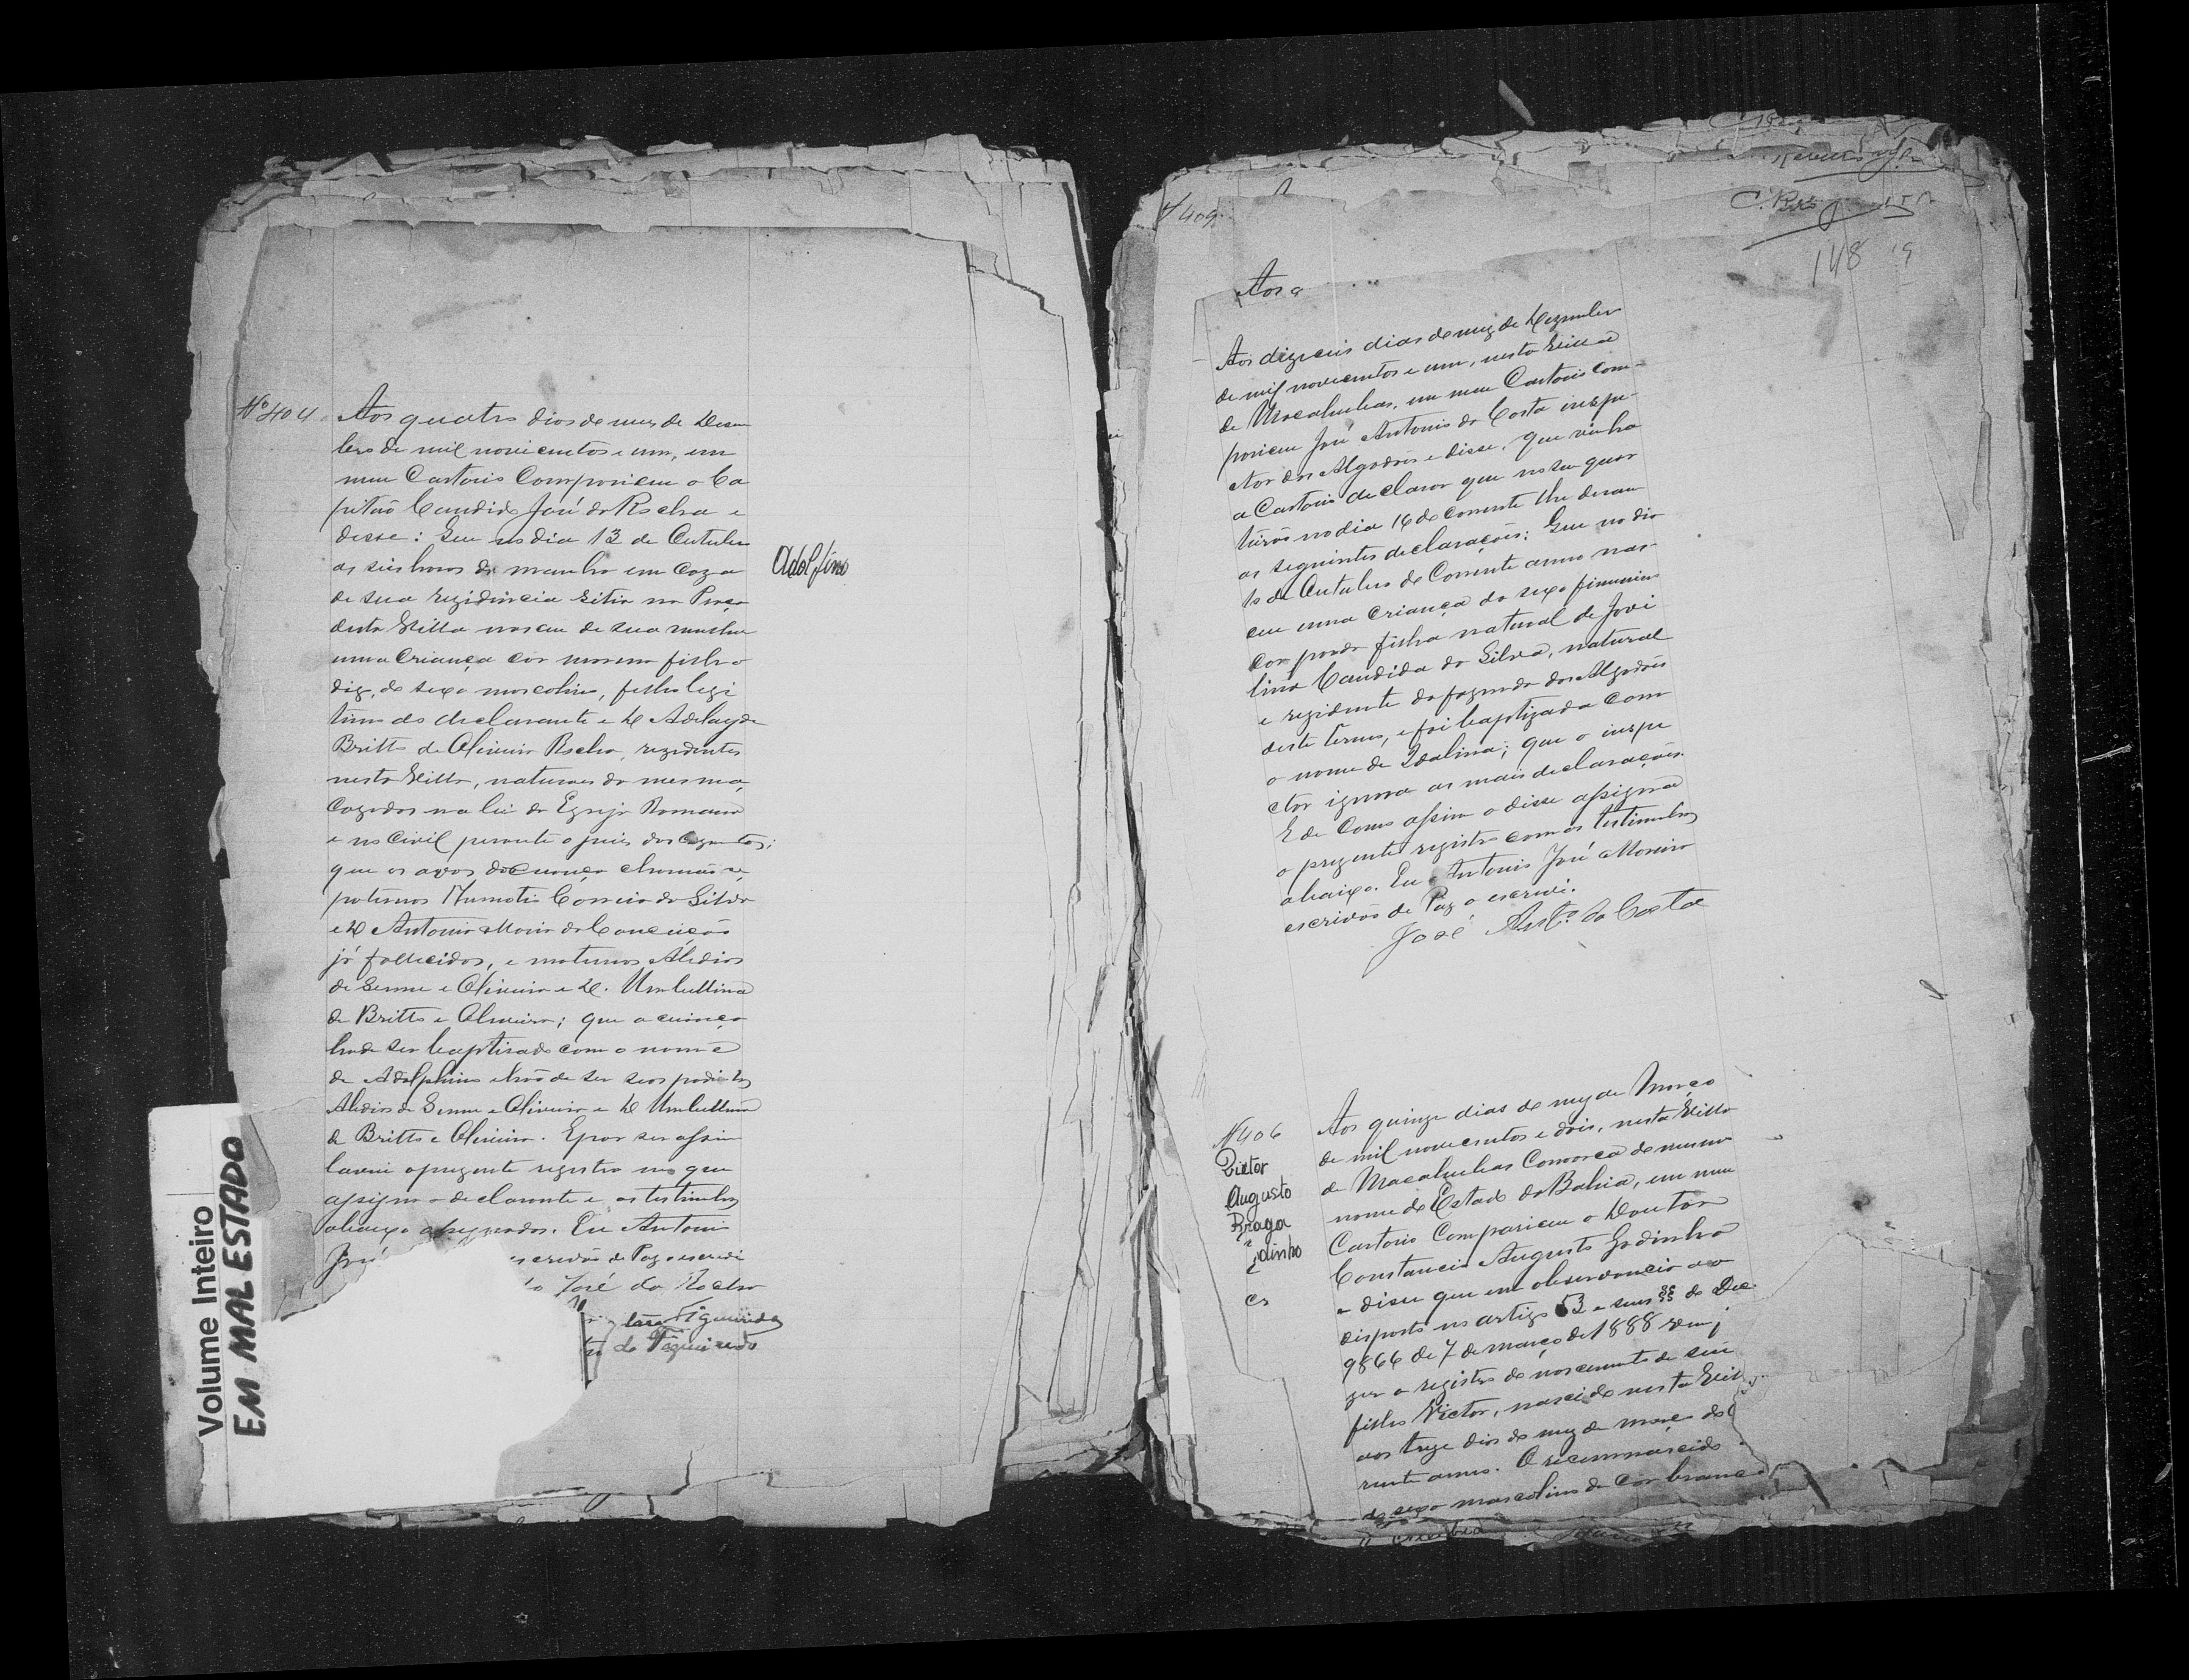 Nº 404
Aos quatro dias do mez de Desem
bro de mil novicentos e um, em
meu Cartorio Compariceu o Ca
pitão Candido José da Rocha e
disse: Que no dia 13 de Outubro
as seis horas da manhã em Caza
de sua rezidencia sitia na Praça
desta Villa nasceu de sua mulher
uma Criança cor morena filho
digo, do sexo mascolino, filho legi
timo do declarante e D Adelayde
Britto de Oliveira Rocha, rezidentes
nesta Villa, naturaes da mesma,
Cazados na lei da Egreja Romana
e no Civil perante o juis dos Cazamentos;
que os avos da Criança chamão se,
paternos Correia da Silva
e D Antonia Maria da Conceição
já fallecidos, e maternos Alidios
de Senna e Oliveira e D. Umbellina
de Britto e Oliveira; que a criança
hade ser baptisado com o nome
de Adolphino e hão de ser seos padrinhos
Alidios de Senna e Oliveira e D Umbellina
de Britto e Oliveira. E por ser assim
lavrei o prezente registro no que
assigna o declarante e as testimunhas
abaixo assignados. Eu Antonio
José escrivão de Paz o escrevi
do José da Rocha
Figueiredo
de Figueiredo
Adolfino
Volume Inteiro
EM MAL ESTADO
409
C. Reis
148
Aos a
Aos dizeceis dias do mez de Dezembro
de mil novecentos e um, nesta Villa
de Macahubas, em meu Cartorio Com-
pariceu José Antonio da Costa inspe-
ctor dos Algodões e disse, que vinha
a Cartorio declarar que no seu quar
teirão no dia 16 do corrente lhe deram
as seguintes declarações: Que no dia
10 de Outubro do Corrente anno nas-
ceu uma Criança do sexo feminino
Cor parda filha natural de Jovi
lina Candida da Silva, natural
e rezidente da fazenda dos Algodões
deste termo, e foi baptizada com
o nome de Idalina; que o inspe
ctor ignora as mais declarações.
E de Como assim o disse assigna
o prezente registro com as testimunhas
abaixo. Eu Antonio José Moreira
escrivão de Paz o escrevi.
José Antº da Costa
N 406
Victor
Augusto
Braga
dinho
Aos quinze dias do mez de Março
de mil novecentos e dois, nesta Villa
de Macahubas Comarca do mesmo
nome do Estado da Bahia, em meu
Cartorio Compariceu o Doutor
Constancio Augusto Godinho
e disse que em observancia ao
disposto no artigo 53 e seus §§ do Dec
9866 de 7 de março de 1888
zer o registro do nascimento de seu
filho Victor, nascido nesta Vill
aos treze dias do mez de março do
rente anno. O recemnascido
do sexo mascolino de Cor branca